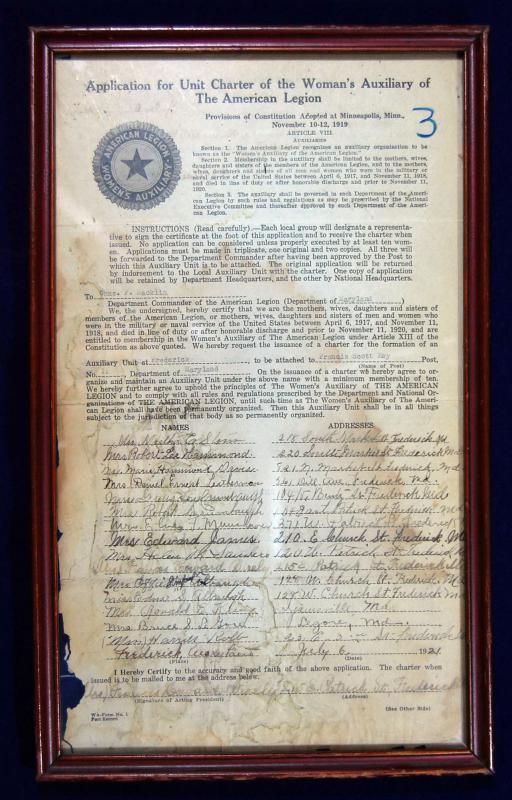 Application for Unit Charter of the Woman's Auxiliary of
The American Legion
3
Provisions of Constitution Adopted at Minneapolis, Minn.,
November 10-12, 1919
ARTICLE VIII.
AUXILIARIES
AMERICAN LEGION
WOMEN'S AUXILIARY
Section 1. The American Legion recognizes an auxiliary organization to be
known as the "Women's Auxiliary of the American Legion."
Section 2. Membership in the auxiliary shall be limited to the mothers, wives,
daughters and sisters of the members of the American Legion, and to the mothers,
wives, daughters and sisters of all men and women who were in the military or
naval service of the United States between April 6, 1917, and November 11, 1918,
and died in line of duty or after honorable discharge and prior to November 11,
1920.
Section 3. The auxiliary shall be governed in each Department of the Ameri-
can Legion by such rules and regulations as may be prescribed by the National
Executive Committee and thereafter approved by such Department of the Ameri-
can Legion.
INSTRUCTIONS (Read carefully).—Each local group will designate a representa-
tive to sign the certificate at the foot of this application and to receive the charter when
issued. No application can be considered unless properly executed by at least ten wom-
en. Applications must be made in triplicate, one original and two copies. All three will
be forwarded to the Department Commander after having been approved by the Post to
which this Auxiliary Unit is to be attached. The original application will be returned by
indorsement to the Local Auxiliary Unit with the charter. One copy of application
will be retained by Department Headquarters, and the other by National Headquarters.
To
Department Commander of the American Legion (Department of Maryland)
We, the undersigned, hereby certify that we are the mothers, wives, daughters and sisters of
members of the American Legion, or mothers, wives, daughters and sisters of men and women who
were in the military or naval service of the United States between April 6, 1917, and November 11,
1918, and died in line of duty or after honorable discharge and prior to November 11, 1920, and are
entitled to membership in the Women's Auxiliary of The American Legion under Article XIII of the
Constitution as above quoted. We hereby request the issuance of a charter for the formation of an
Auxiliary Unit at Frederick to be attached to Francis Scott Key Post,
(Name of Post)
No. Department of Maryland On the issuance of a charter we hereby agree to or-
ganize and maintain an Auxiliary Unit under the above name with a minimum membership of ten.
We hereby further agree to uphold the principles of The Women's Auxiliary of THE AMERICAN
LEGION and to comply with all rules and regulations prescribed by the Department and National Or-
ganizations of THE AMERICAN LEGION, until such time as The Women's Auxiliary of The Ameri-
can Legion shall have been permanently organized. Then this Auxiliary Unit shall be in all things
subject to the jurisdiction of that body as so permanently organized.
NAMES ADDRESSES
218 South Market St Frederick Md
Mrs. Robert Lee Hammond 220 South Market St Frederick Md
Marie Hammond Davis 521 N. Market St Frederick, Md
Mrs. Daniel Ernest Leatherman Frederick, Md.
Frederick Md
East Patrick St Frederick Md
W. Patrick St Frederick
Mrs Edward James 210 E. Church St. Frederick Md
Mrs Helen W. Patrick St Frederick Md
Patrick St Frederick Md
128 W. Church St. Frederick, Md
128 W. Church St Frederick Md
Ijamsville Md
Mrs Bruce S. Legore, Md.
(Miss) Harriet St Frederick
Frederick, July 6 1921
(Place) (Date)
I Hereby Certify to the accuracy and good faith of the above application. The charter when
issued is to be mailed to me at the address stated.
E Patrick St. Frederick
(Signature of Acting President) (Address)
WA-Form No. 1
(See Other Side)